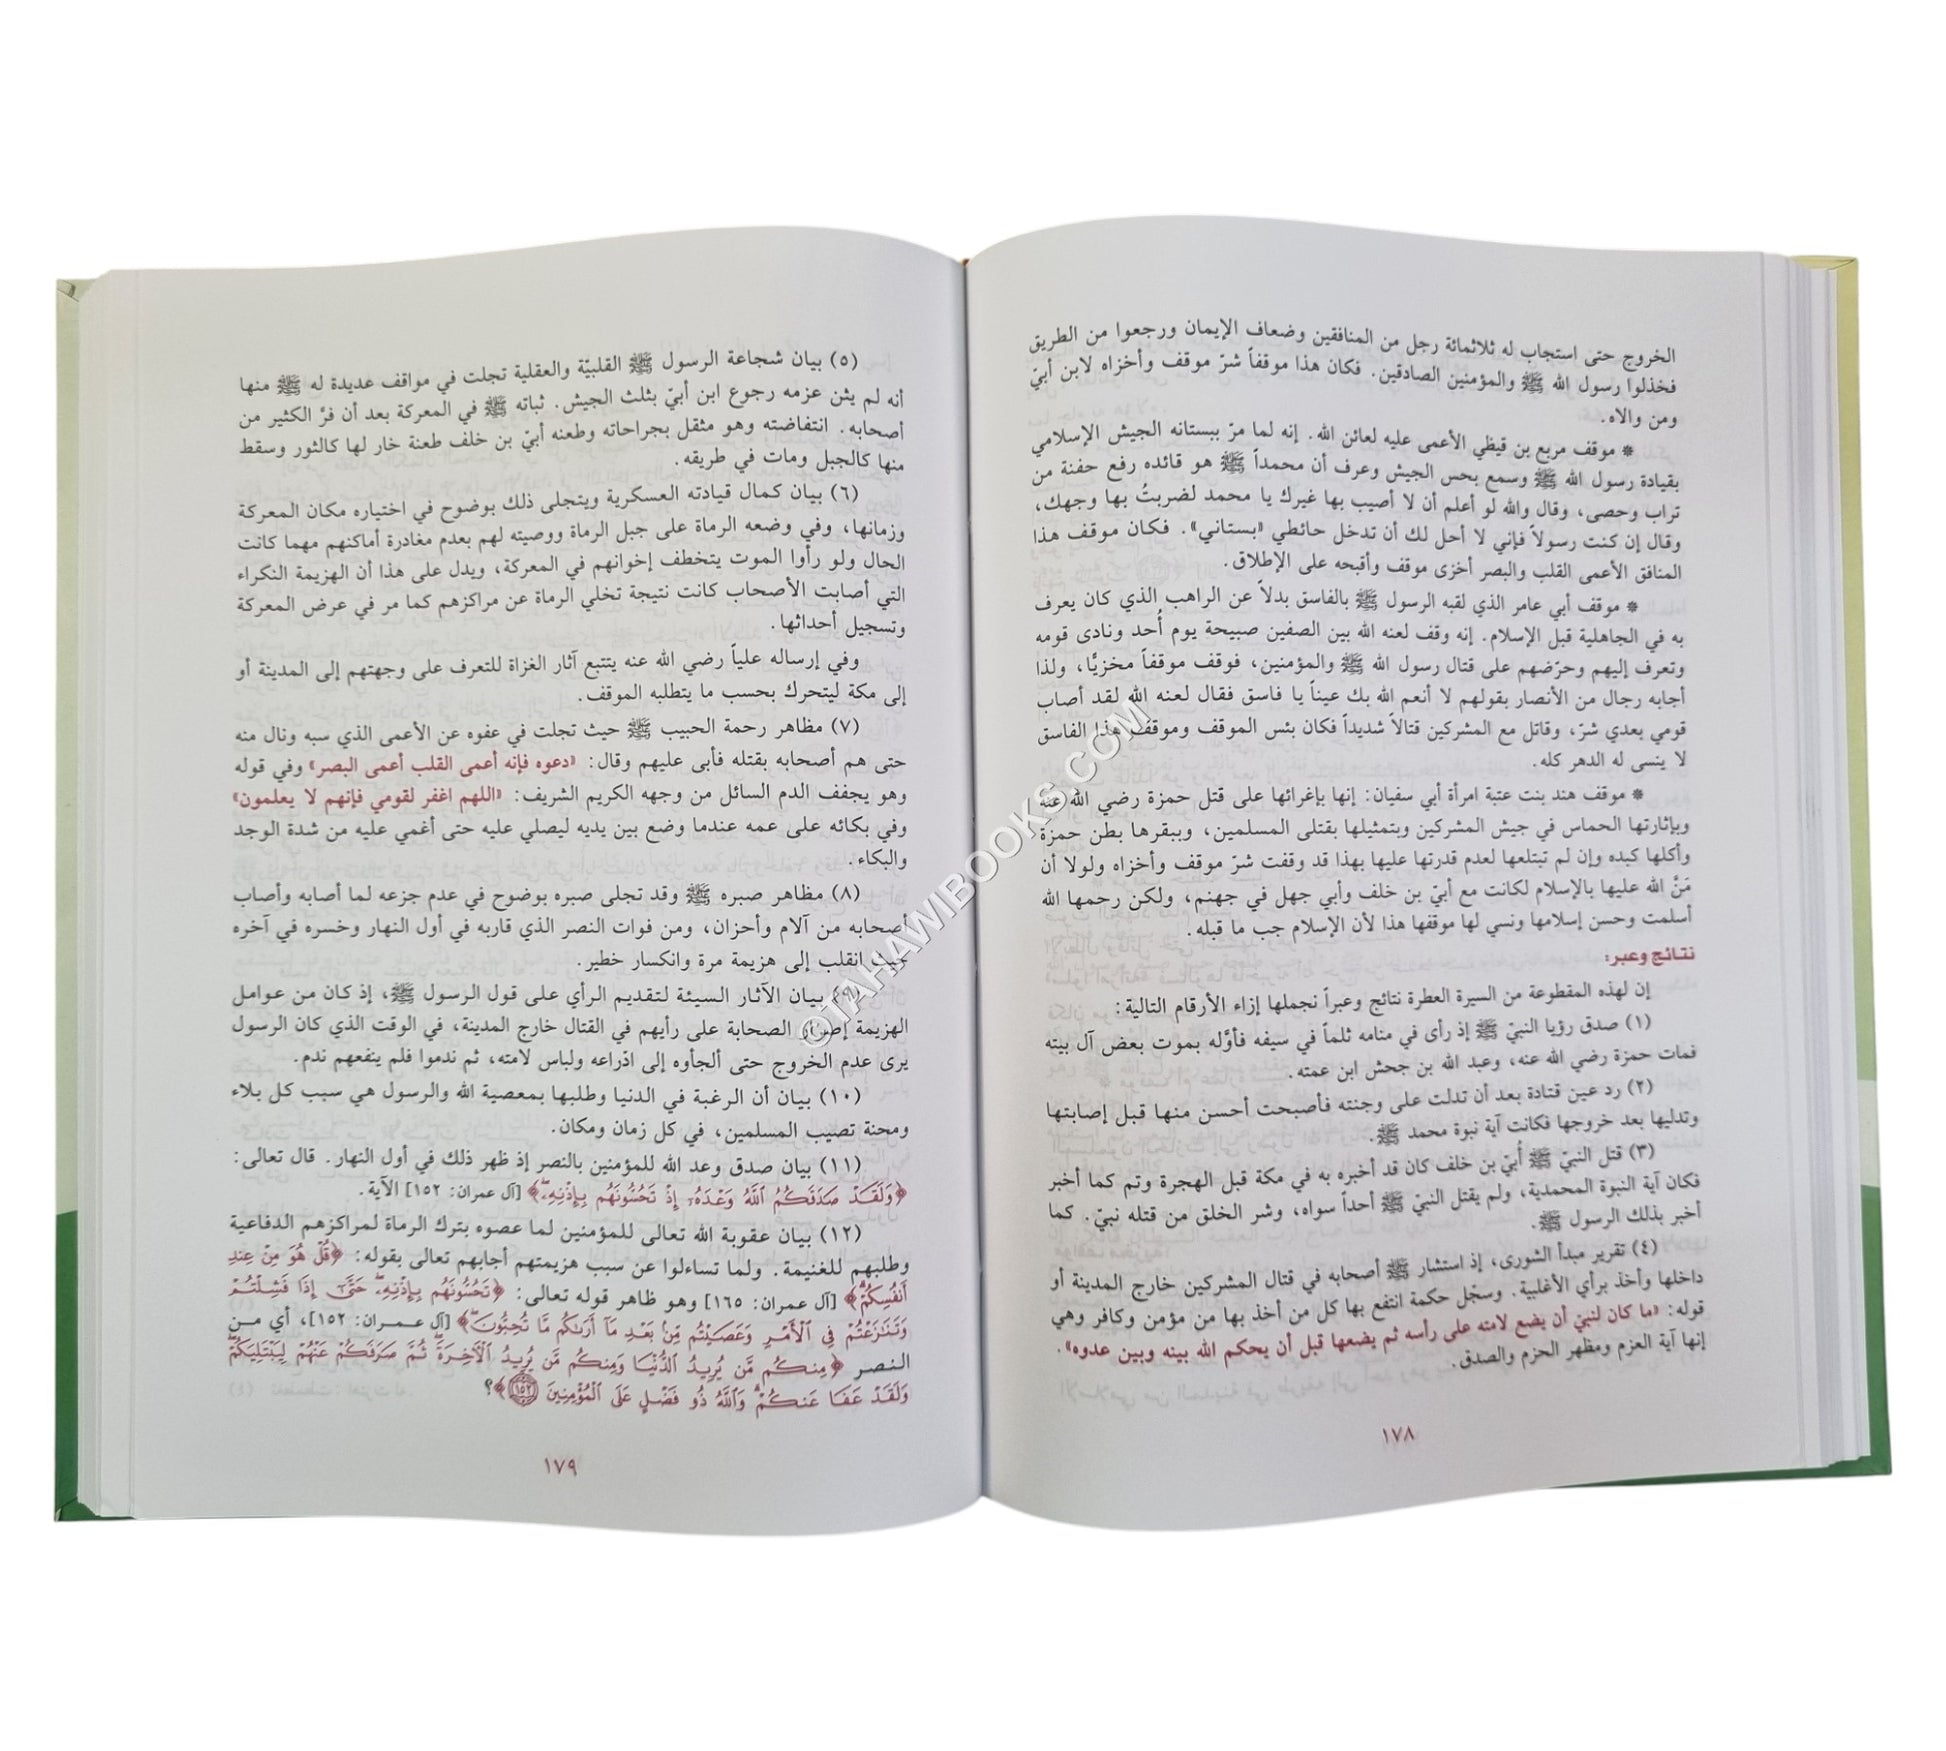 الخروج حتى استجاب له ثلاثمائة رجل من المنافقين وضعاف الإيمان ورجعوا من الطريق
فخذلوا رسول الله ﷺ والمؤمنين الصادقين. فكان هذا موقفاً شرّ موقف وأخزاه لابن أبيّ
ومن والاه.
* موقف مربع بن قيظي الأعمى عليه لعائن الله. إنه لما مرّ ببستانه الجيش الإسلامي
بقيادة رسول الله ﷺ وسمع بحس الجيش وعرف أن محمداً ﷺ هو قائده رفع حفنة من
تراب وحصى، وقال والله لو أعلم أن لا أصيب بها غيرك يا محمد لضربتُ بها وجهك،
وقال إن كنت رسولاً فإني لا أحل لك أن تدخل حائطي «بستاني». فكان موقف هذا
المنافق الأعمى القلب والبصر أخزى موقف وأقبحه على الإطلاق.
* موقف أبي عامر الذي لقبه الرسول ﷺ بالفاسق بدلاً عن الراهب الذي كان يعرف
به في الجاهلية قبل الإسلام. إنه وقف لعنه الله بين الصفين صبيحة يوم أُحد ونادى قومه
وتعرف إليهم وحرّضهم على قتال رسول الله ﷺ والمؤمنين، فوقف موقفاً مخزيًّا، ولذا
أجابه رجال من الأنصار بقولهم لا أنعم الله بك عيناً يا فاسق فقال لعنه الله لقد أصاب
قومي بعدي شرّ، وقاتل مع المشركين قتالاً شديداً فكان بئس الموقف وموقف هذا الفاسق
لا ينسى له الدهر كله.
* موقف هند بنت عتبة امرأة أبي سفيان: إنها بإغرائها على قتل حمزة رضي الله عنه
وبإثارتها الحماس في جيش المشركين وبتمثيلها بقتلى المسلمين، وببقرها بطن حمزة
وأكلها كبده وإن لم تبتلعها لعدم قدرتها عليها بهذا قد وقفت شرّ موقف وأخزاه ولولا أن
مَنَّ الله عليها بالإسلام لكانت مع أبيّ بن خلف وأبي جهل في جهنم، ولكن رحمها الله
أسلمت وحسن إسلامها ونسي لها موقفها هذا لأن الإسلام جب ما قبله.
نتائج وعبر:
إن لهذه المقطوعة من السيرة العطرة نتائج وعبراً نجملها إزاء الأرقام التالية:
(١) صدق رؤيا النبيّ ﷺ إذ رأى في منامه ثلماً في سيفه فأوَّله بموت بعض آل بيته
فمات حمزة رضي الله عنه، وعبد الله بن جحش ابن عمته.
(٢) رد عين قتادة بعد أن تدلت على وجنته فأصبحت أحسن منها قبل إصابتها
وتدليها بعد خروجها فكانت آية نبوة محمد ﷺ.
(٣) قتل النبيّ ﷺ أُبيّ بن خلف كان قد أخبره به في مكة قبل الهجرة وتم كما أخبر
فكان آية النبوة المحمدية، ولم يقتل النبيّ ﷺ أحداً سواه، وشر الخلق من قتله نبيّ. كما
أخبر بذلك الرسول ﷺ.
(٤) تقرير مبدأ الشورى، إذ استشار ﷺ أصحابه في قتال المشركين خارج المدينة أو
داخلها وأخذ برأي الأغلبية. وسجّل حكمة انتفع بها كل من أخذ بها من مؤمن وكافر وهي
قوله: «ما كان لنبيّ أن يضع لامته على رأسه ثم يضعها قبل أن يحكم الله بينه وبين عدوه».
إنها آية العزم ومظهر الحزم والصدق.
١٧٨
(٥) بيان شجاعة الرسول ﷺ القلبيّة والعقلية تجلت في مواقف عديدة له ﷺ منها
أنه لم يثن عزمه رجوع ابن أبيّ بثلث الجيش. ثباته ﷺ في المعركة بعد أن فرَّ الكثير من
أصحابه. انتفاضته وهو مثقل بجراحاته وطعنه أبيّ بن خلف طعنة خار لها كالثور وسقط
منها كالجبل ومات في طريقه.
(٦) بيان كمال قيادته العسكرية ويتجلى ذلك بوضوح في اختياره مكان المعركة
وزمانها، وفي وضعه الرماة على جبل الرماة ووصيته لهم بعدم مغادرة أماكنهم مهما كانت
الحال ولو رأوا الموت يتخطف إخوانهم في المعركة، ويدل على هذا أن الهزيمة النكراء
التي أصابت الأصحاب كانت نتيجة تخلي الرماة عن مراكزهم كما مر في عرض المعركة
وتسجيل أحداثها.
وفي إرساله علياً رضي الله عنه يتتبع آثار الغزاة للتعرف على وجهتهم إلى المدينة أو
إلى مكة ليتحرك بحسب ما يتطلبه الموقف.
(٧) مظاهر رحمة الحبيب ﷺ حيث تجلت في عفوه عن الأعمى الذي سبه ونال منه
حتى هم أصحابه بقتله فأبى عليهم وقال: «دعوه فإنه أعمى القلب أعمى البصر» وفي قوله
وهو يجفف الدم السائل من وجهه الكريم الشريف: «اللهم اغفر لقومي فإنهم لا يعلمون»
وفي بكائه على عمه عندما وضع بين يديه ليصلي عليه حتى أغمي عليه من شدة الوجد
والبكاء.
(٨) مظاهر صبره ﷺ وقد تجلى صبره بوضوح في عدم جزعه لما أصابه وأصاب
أصحابه من آلام وأحزان، ومن فوات النصر الذي قاربه في أول النهار وخسره في آخره
حيث انقلب إلى هزيمة مرة وانكسار خطير.
(٩) بيان الآثار السيئة لتقديم الرأي على قول الرسول ﷺ، إذ كان من عوامل
الهزيمة إصرار الصحابة على رأيهم في القتال خارج المدينة، في الوقت الذي كان الرسول
يرى عدم الخروج حتى ألجأوه إلى ادّراعه ولباس لامته، ثم ندموا فلم ينفعهم ندم.
(١٠) بيان أن الرغبة في الدنيا وطلبها بمعصية الله والرسول هي سبب كل بلاء
ومحنة تصيب المسلمين، في كل زمان ومكان.
(١١) بيان صدق وعد الله للمؤمنين بالنصر إذ ظهر ذلك في أول النهار. قال تعالى:
﴿وَلَقَدْ صَدَقَكُمُ ٱللَّهُ وَعْدَهُۥٓ إِذْ تَحُسُّونَهُم بِإِذْنِهِۦ﴾ [آل عمران: ١٥٢] الآية.
(١٢) بيان عقوبة الله تعالى للمؤمنين لما عصوه بترك الرماة لمراكزهم الدفاعية
وطلبهم للغنيمة. ولما تساءلوا عن سبب هزيمتهم أجابهم تعالى بقوله: ﴿قُلْ هُوَ مِنْ عِندِ
أَنفُسِكُمْ﴾ [آل عمران: ١٦٥] وهو ظاهر قوله تعالى: ﴿تَحُسُّونَهُم بِإِذْنِهِۦ حَتَّىٰٓ إِذَا فَشِلْتُمْ
وَتَنَٰزَعْتُمْ فِى ٱلْأَمْرِ وَعَصَيْتُم مِّنۢ بَعْدِ مَآ أَرَىٰكُم مَّا تُحِبُّونَ﴾ [آل عمران: ١٥٢]، أي من
النصر ﴿مِنكُم مَّن يُرِيدُ ٱلدُّنْيَا وَمِنكُم مَّن يُرِيدُ ٱلْءَاخِرَةَ ثُمَّ صَرَفَكُمْ عَنْهُمْ لِيَبْتَلِيَكُمْ
وَلَقَدْ عَفَا عَنكُمْ وَٱللَّهُ ذُو فَضْلٍ عَلَى ٱلْمُؤْمِنِينَ ١٥٢﴾؟
١٧٩
©TAHAWIBOOKS.COM